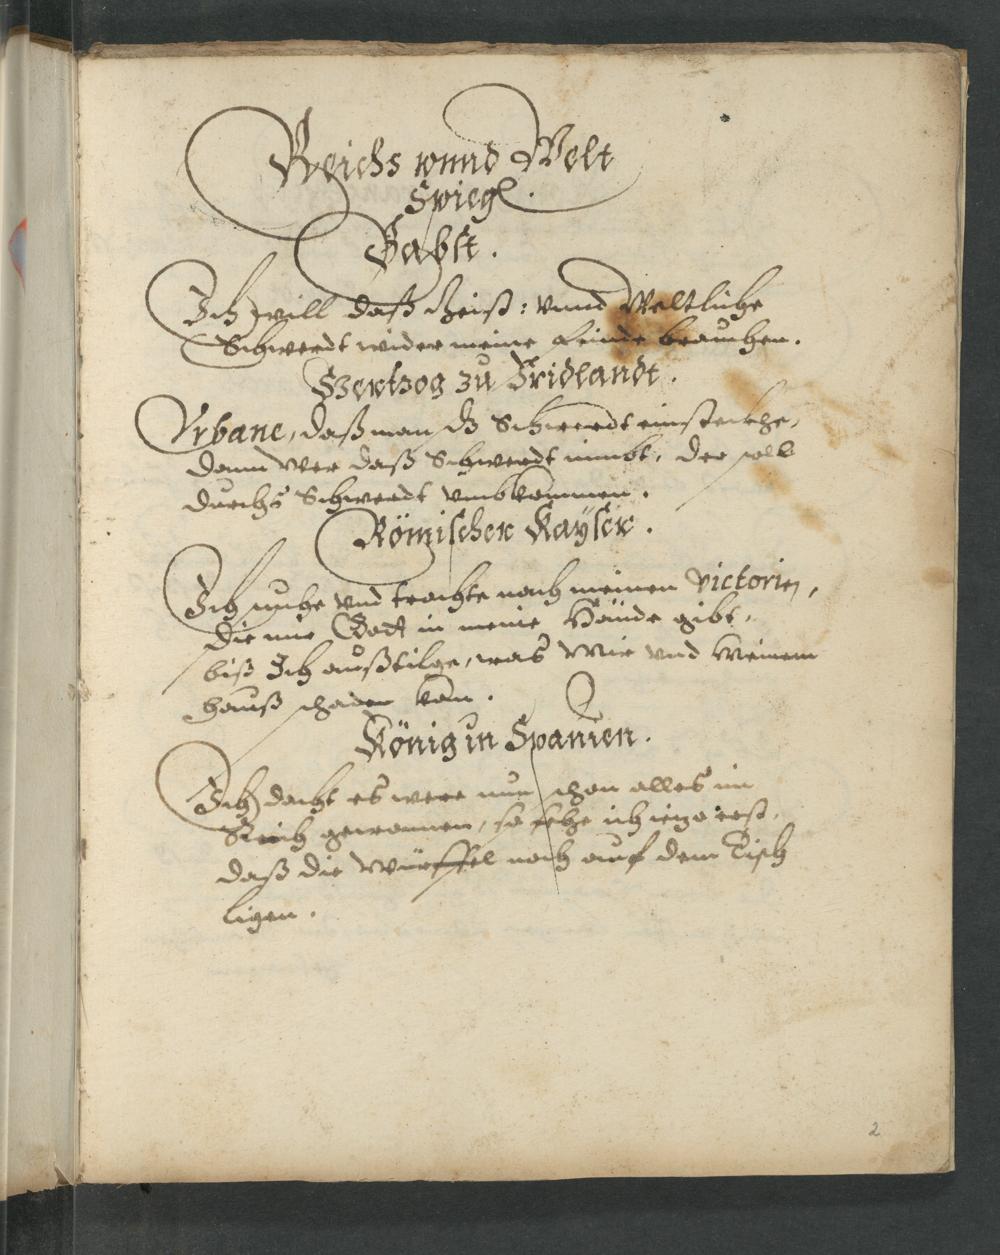 Reichs vnnd Welt
Spiegl.
Babst.
Ich will daß Geist: vnnd Weltliche
Schwerdt wider meine Feinde brauchen.
Hertzog zu Fridlandt.
Vrbane, daß man dz Schwerdt einsteckhe,
dann wer daß Schwerdt nimbt, der soll
durchs Schwerdt vmbkommen.
Römischer Kayser.
Ich suche vnd trachte nach meinen victorien,
die mir Gott in meine Hände gibt,
biß Ich außtilge, was Mir vnd Meinem
Hauß schaden kan.
König in Spanien.
Ich dacht es were nun schon alles im
Reich gewonnen, so sehe ich iezo erst,
daß die Würffel noch auf dem Tisch
ligen.
2